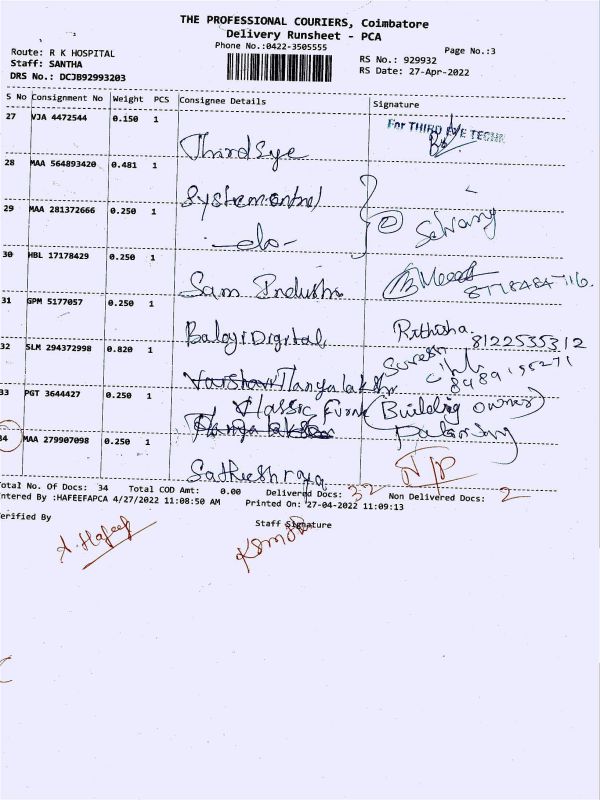 THE PROFESSIONAL COURIERS, Coimbatore
Delivery Runsheet - PCA
Phone No.:0422-3505555
Page No.:3
Route: R K HOSPITAL
Staff: SANTHA
DRS No.: DCJB92993203
RS No.: 929932
RS Date: 27-Apr-2022
S No Consignment No Weight PCS Consignee Details Signature
27 VJA 4472544 0.150 1
For THIRD EYE TECHN
Third eye
28 MAA 564893420 0.481 1
Systemcontrol
29 MAA 281372666 0.250 1
Selvang
-do-
30 HBL 17178429 0.250 1
Sam Industri 8778484716.
31 GPM 5177057 0.250 1
Balaji Digital Rithisha 8122535312
32 SLM 294372998 0.820 1
Suresh
8489195271
Varshav Mangalakshi
33 PGT 3644427 0.250 1
Classic Furni (Building owner)
34 MAA 279907098 0.250 1
Sathieshraja N/P
Total No. Of Docs: 34 Total COD Amt: 0.00 Delivered Docs: 32 Non Delivered Docs: 2
ntered By :HAFEEFAPCA 4/27/2022 11:08:50 AM Printed On: 27-04-2022 11:09:13
erified By Staff Signature
A. Hafeef